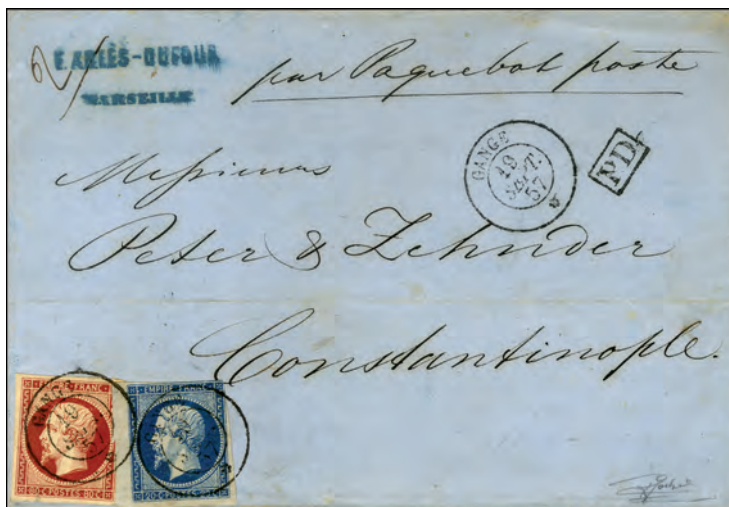 2/
F. ARLÈS-DUFOUR
MARSEILLE
par Paquebot poste
GANGE
19
SEPT.
57
PD
Messieurs
Peter & Zehnder
Constantinople.
EMPIRE FRANC
80 C POSTES 80 C
GANGE
19
EMPIRE FRANC
20 C POSTES 20 C